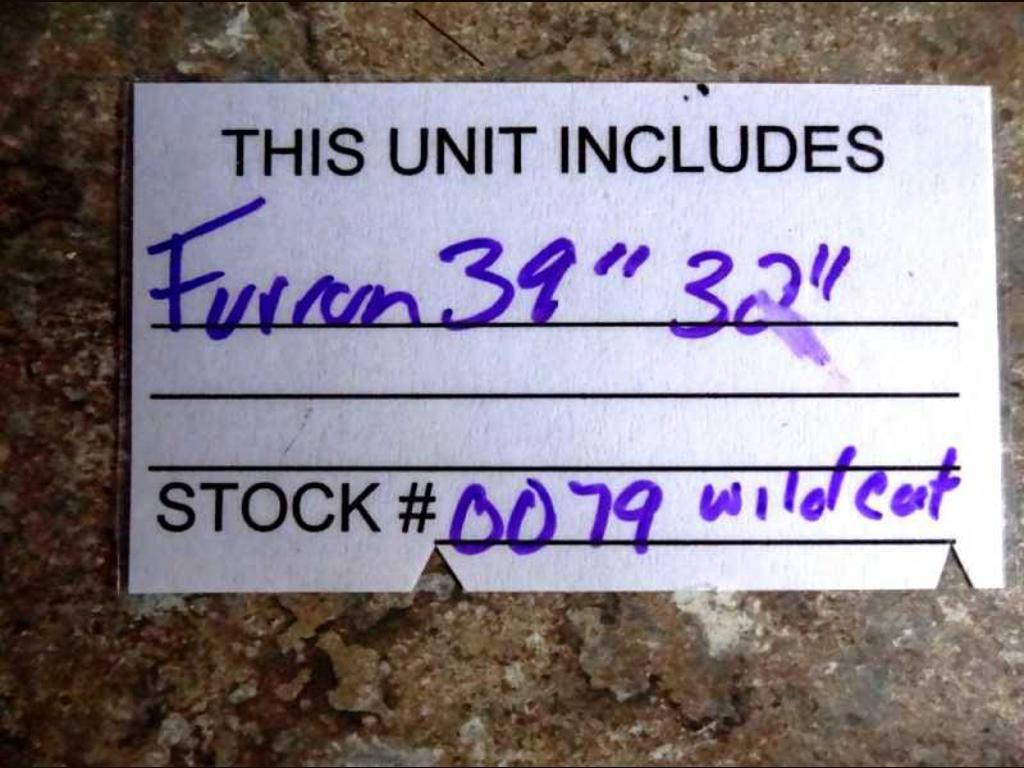 THIS UNIT INCLUDES
Furrion 39" 32"
STOCK # 0079 wildcat